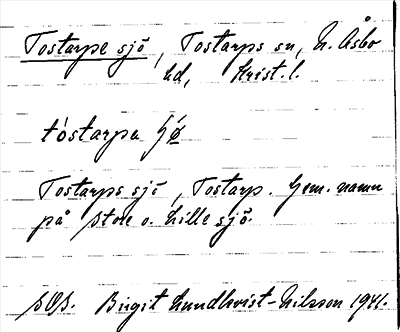 Tostarpe sjö, Tostarps sn, N. Åsbo
hd, Krist. l.
tóstarpa
Tostarps sjö, Tostarp. Gem. namn
på Store o. Lille sjö.
Birgit Lundkvist-Nilsson 1941.